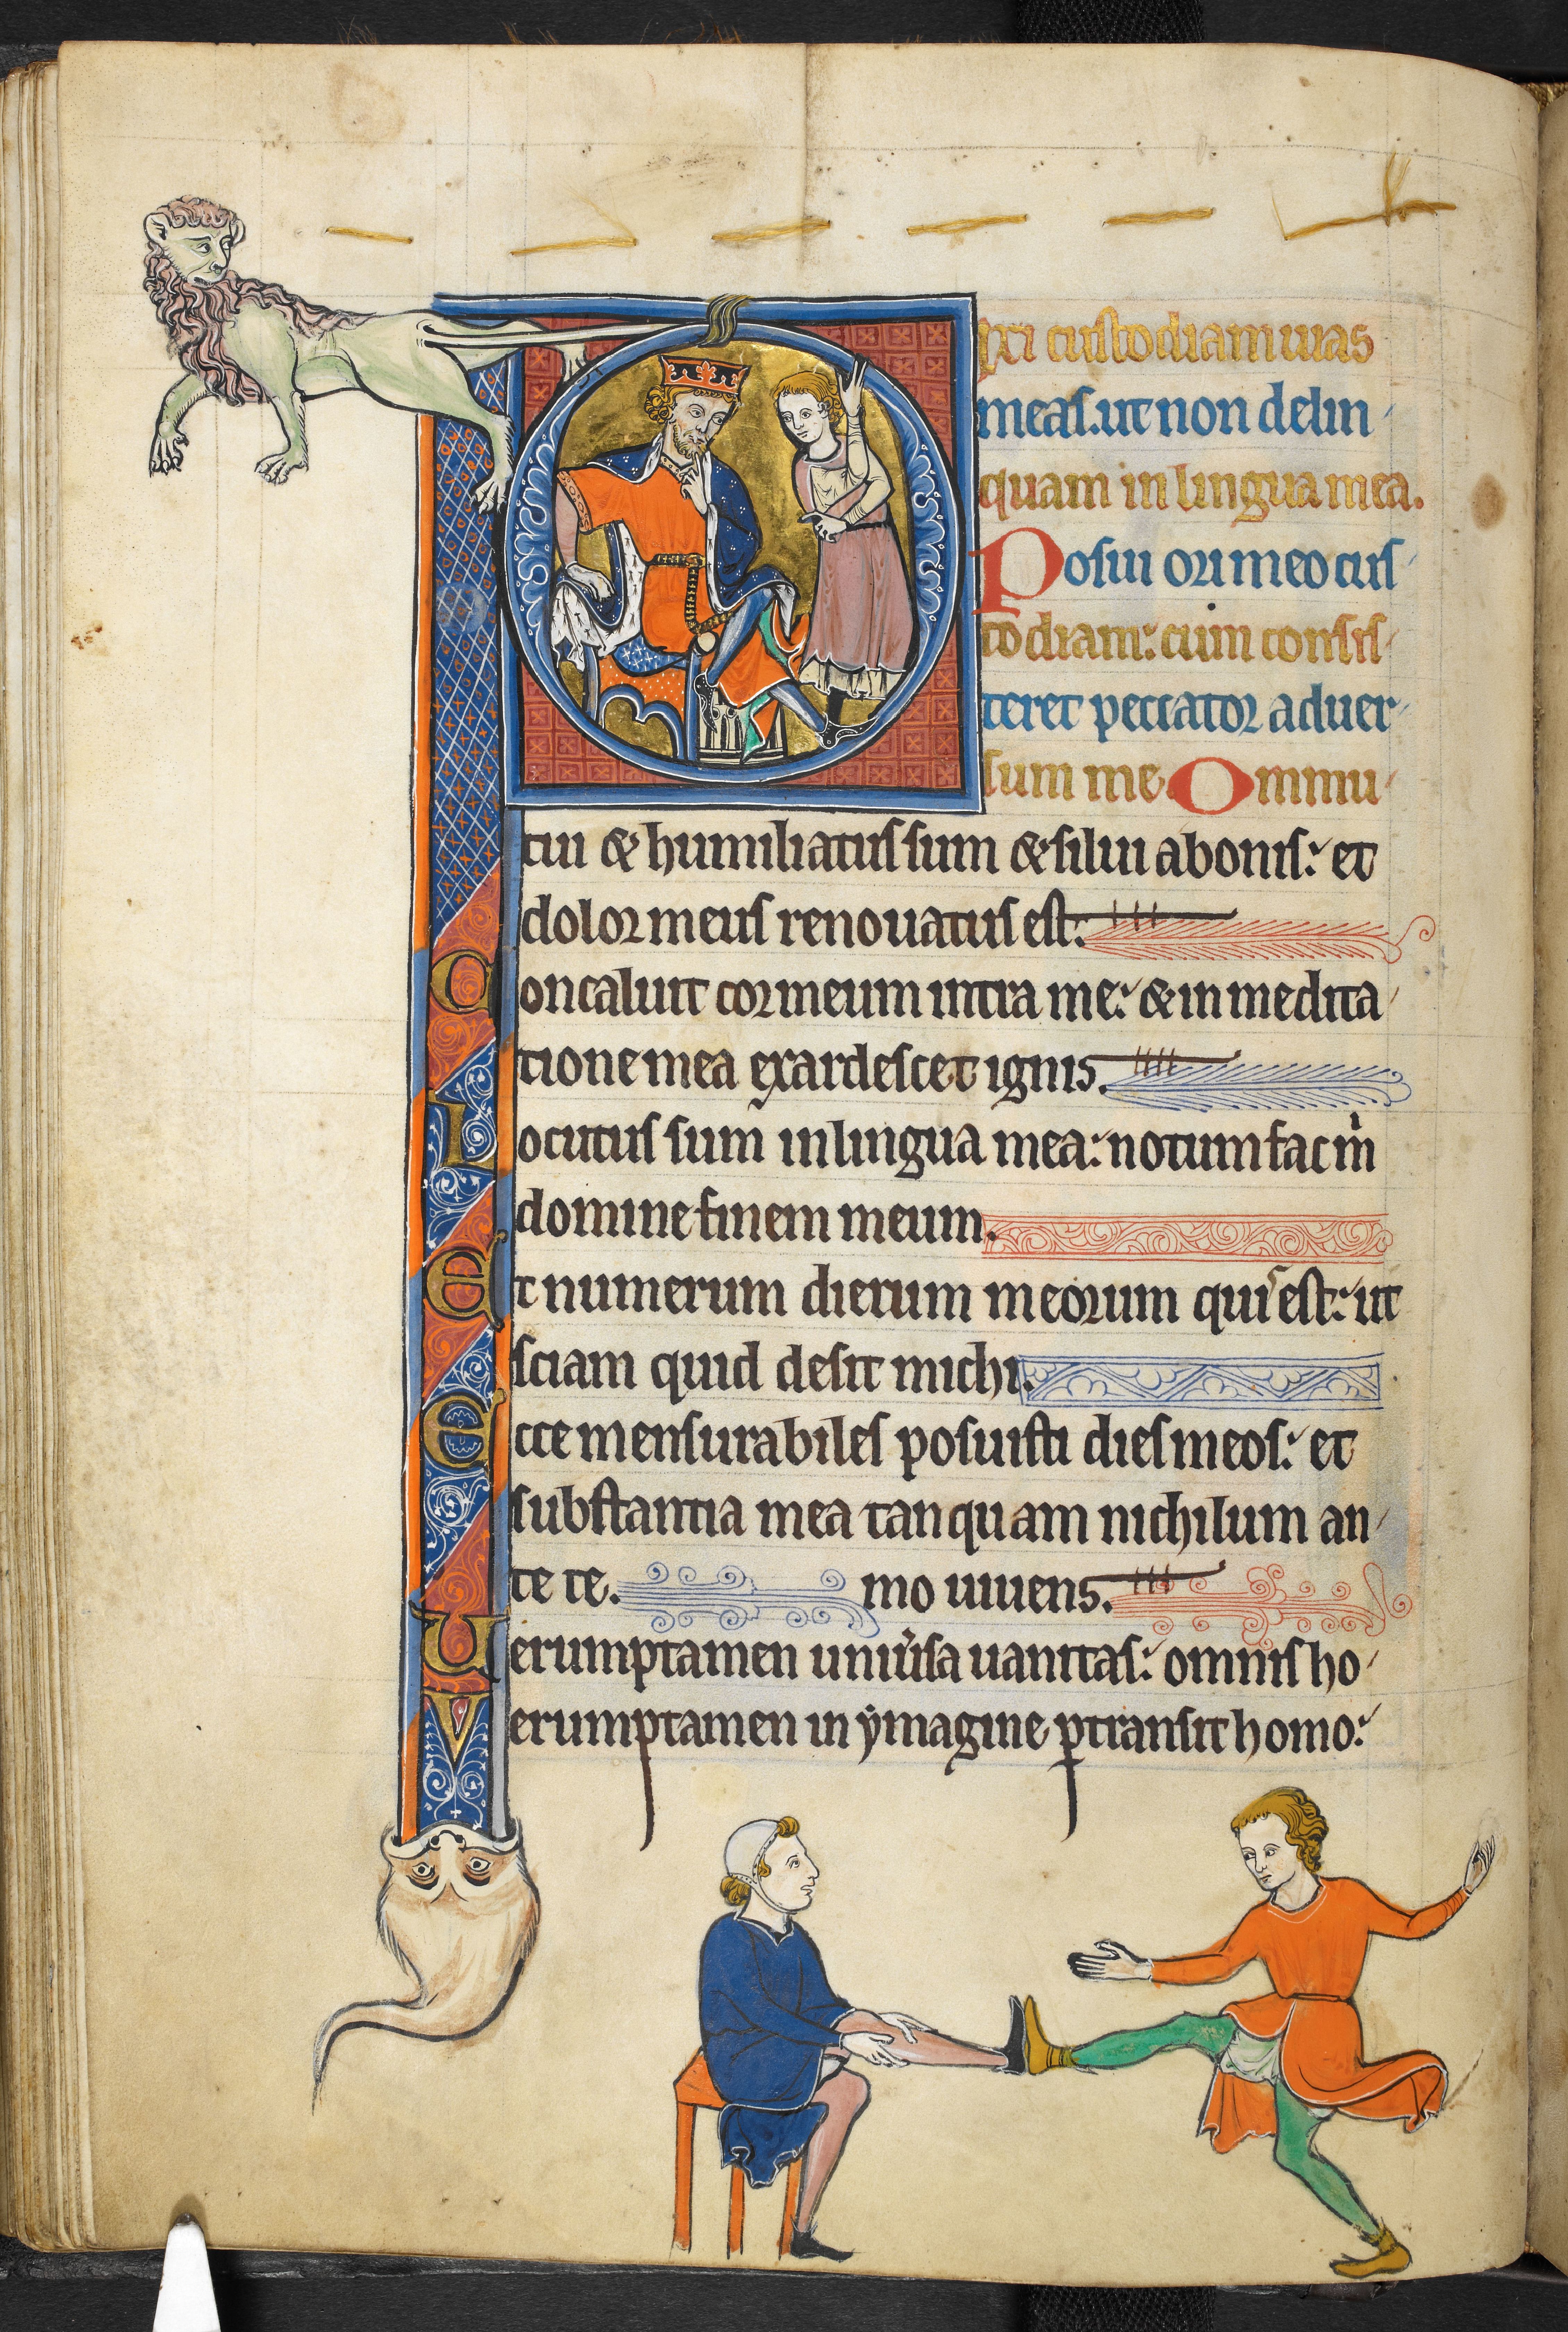 Dixi custodiam uias
meas. ut non delin
quam in lingua mea.
Posui ori meo cus
todiam: cum consis
teret peccator aduer
sum me. Ommu
tui & humiliatus sum & silui a bonis: et
dolor meus renouatus est.
Concaluit cor meum intra me: & in medita
tione mea exardescet ignis.
Locutus sum in lingua mea: notum fac m
domine finem meum.
Et numerum dierum meorum quis est: ut
sciam quid desit michi.
Ecce mensurabiles posuisti dies meos: et
substantia mea tanquam nichilum an
te te. mo uiuens.
Uerumptamen uniusa uanitas: omnis ho
Verumptamen in ymagine ptransit homo: